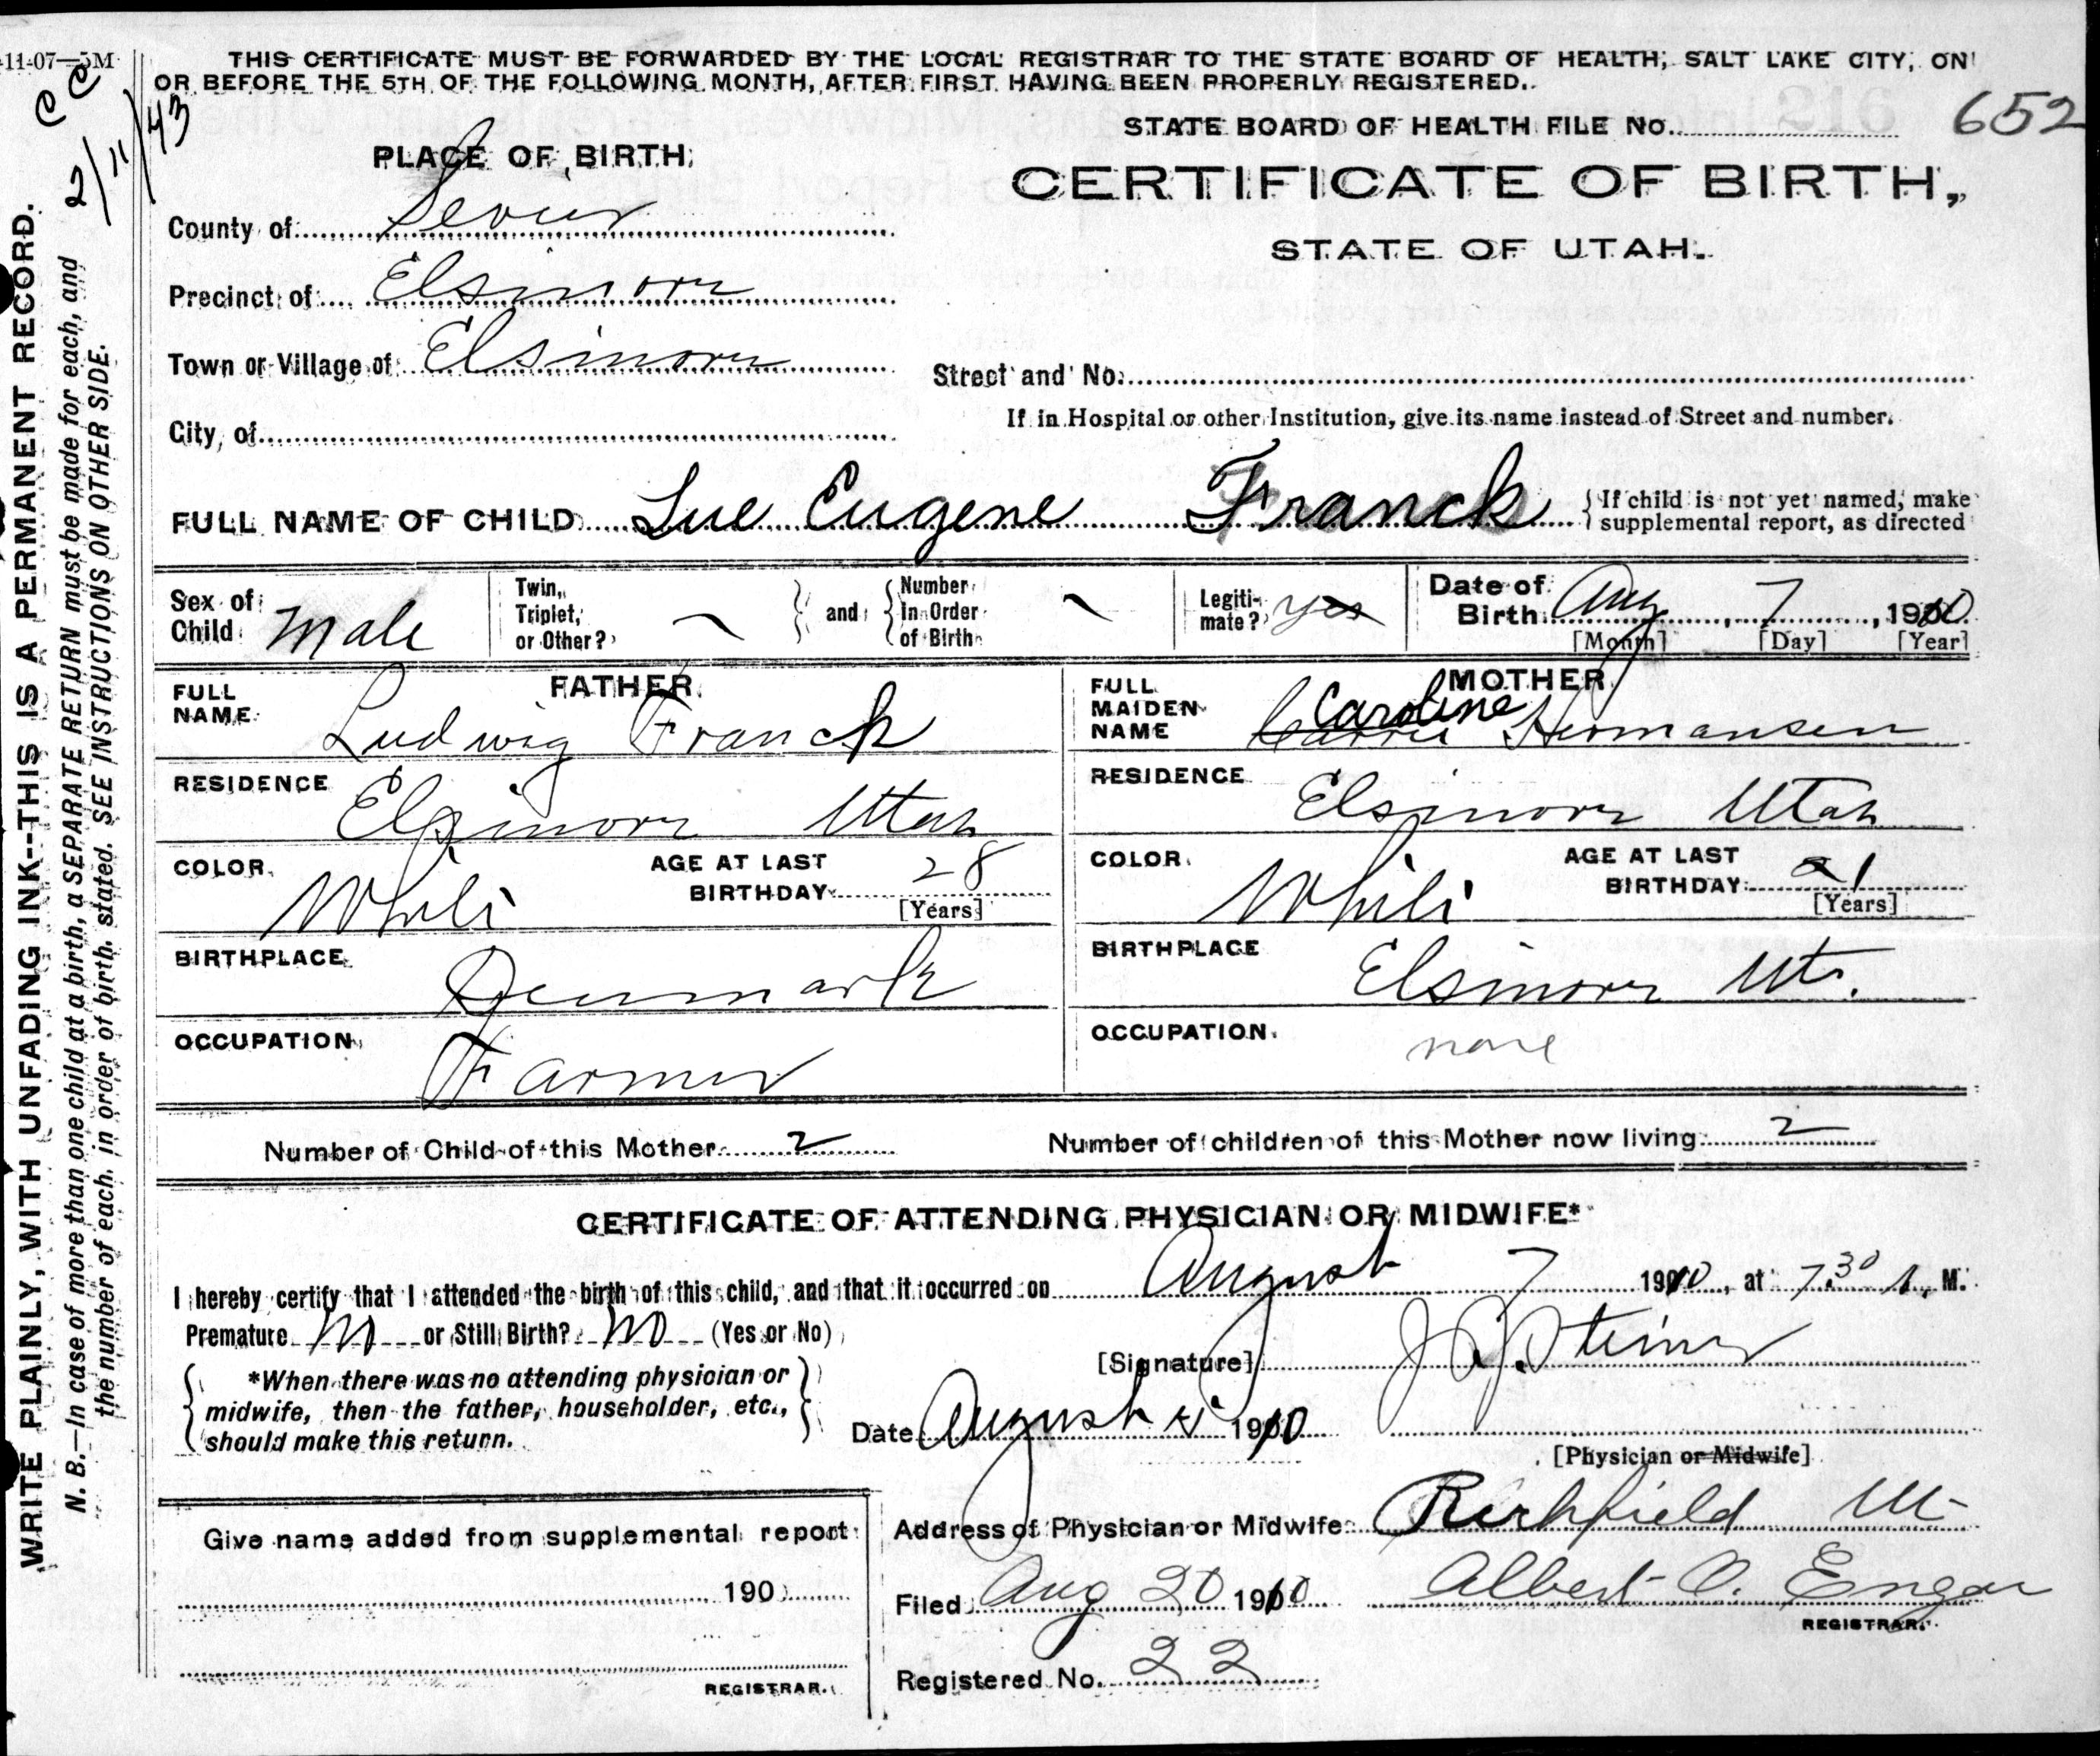 11-07—5M
THIS CERTIFICATE MUST BE FORWARDED BY THE LOCAL REGISTRAR TO THE STATE BOARD OF HEALTH, SALT LAKE CITY, ON
OR BEFORE THE 5TH OF THE FOLLOWING MONTH, AFTER FIRST HAVING BEEN PROPERLY REGISTERED.
CC
2/11/43
STATE BOARD OF HEALTH FILE No. 216 652
PLACE OF BIRTH
CERTIFICATE OF BIRTH,
STATE OF UTAH.
County of Sevier
Precinct of Elsinore
Town or Village of Elsinore
Street and No.
City of
If in Hospital or other Institution, give its name instead of Street and number.
FULL NAME OF CHILD Lue Eugene Franck {If child is not yet named, make
supplemental report, as directed
Sex of Child Male
Twin, Triplet, or Other?
and
Number in Order of Birth
Legitimate? yes
Date of Birth Aug 7, 1910
[Month] [Day] [Year]
FATHER
FULL NAME Ludwig Franck
RESIDENCE Elsinore Utah
COLOR White
AGE AT LAST BIRTHDAY 28
[Years]
BIRTHPLACE Denmark
OCCUPATION Farmer
MOTHER
FULL MAIDEN NAME Carrie Caroline Hermansen
RESIDENCE Elsinore Utah
COLOR White
AGE AT LAST BIRTHDAY 21
[Years]
BIRTHPLACE Elsinore Ut.
OCCUPATION none
Number of Child of this Mother 2
Number of children of this Mother now living 2
CERTIFICATE OF ATTENDING PHYSICIAN OR MIDWIFE*
I hereby certify that I attended the birth of this child, and that it occurred on August 7 1910, at 7.30 A, M.
Premature no or Still Birth? no (Yes or No)
*When there was no attending physician or
midwife, then the father, householder, etc.,
should make this return.
[Signature] J. J. Steiner
Date August 1910
[Physician or Midwife]
Address of Physician or Midwife Richfield Ut
Filed Aug 20 1910 Albert O. Engar
REGISTRAR.
Registered No. 22
Give name added from supplemental report
190
REGISTRAR.
WRITE PLAINLY, WITH UNFADING INK--THIS IS A PERMANENT RECORD.
N. B.—In case of more than one child at a birth, a SEPARATE RETURN must be made for each, and
the number of each, in order of birth, stated. SEE INSTRUCTIONS ON OTHER SIDE.